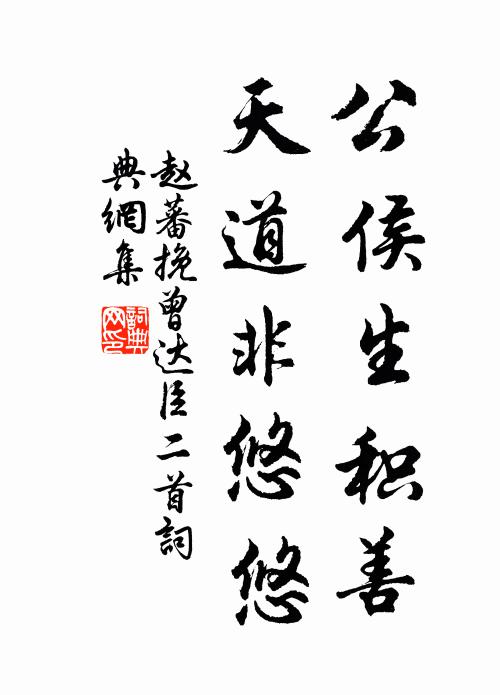 公侯生积善
天道非悠悠
赵蕃挽曾达臣二首詞
典網集
詞典
网印